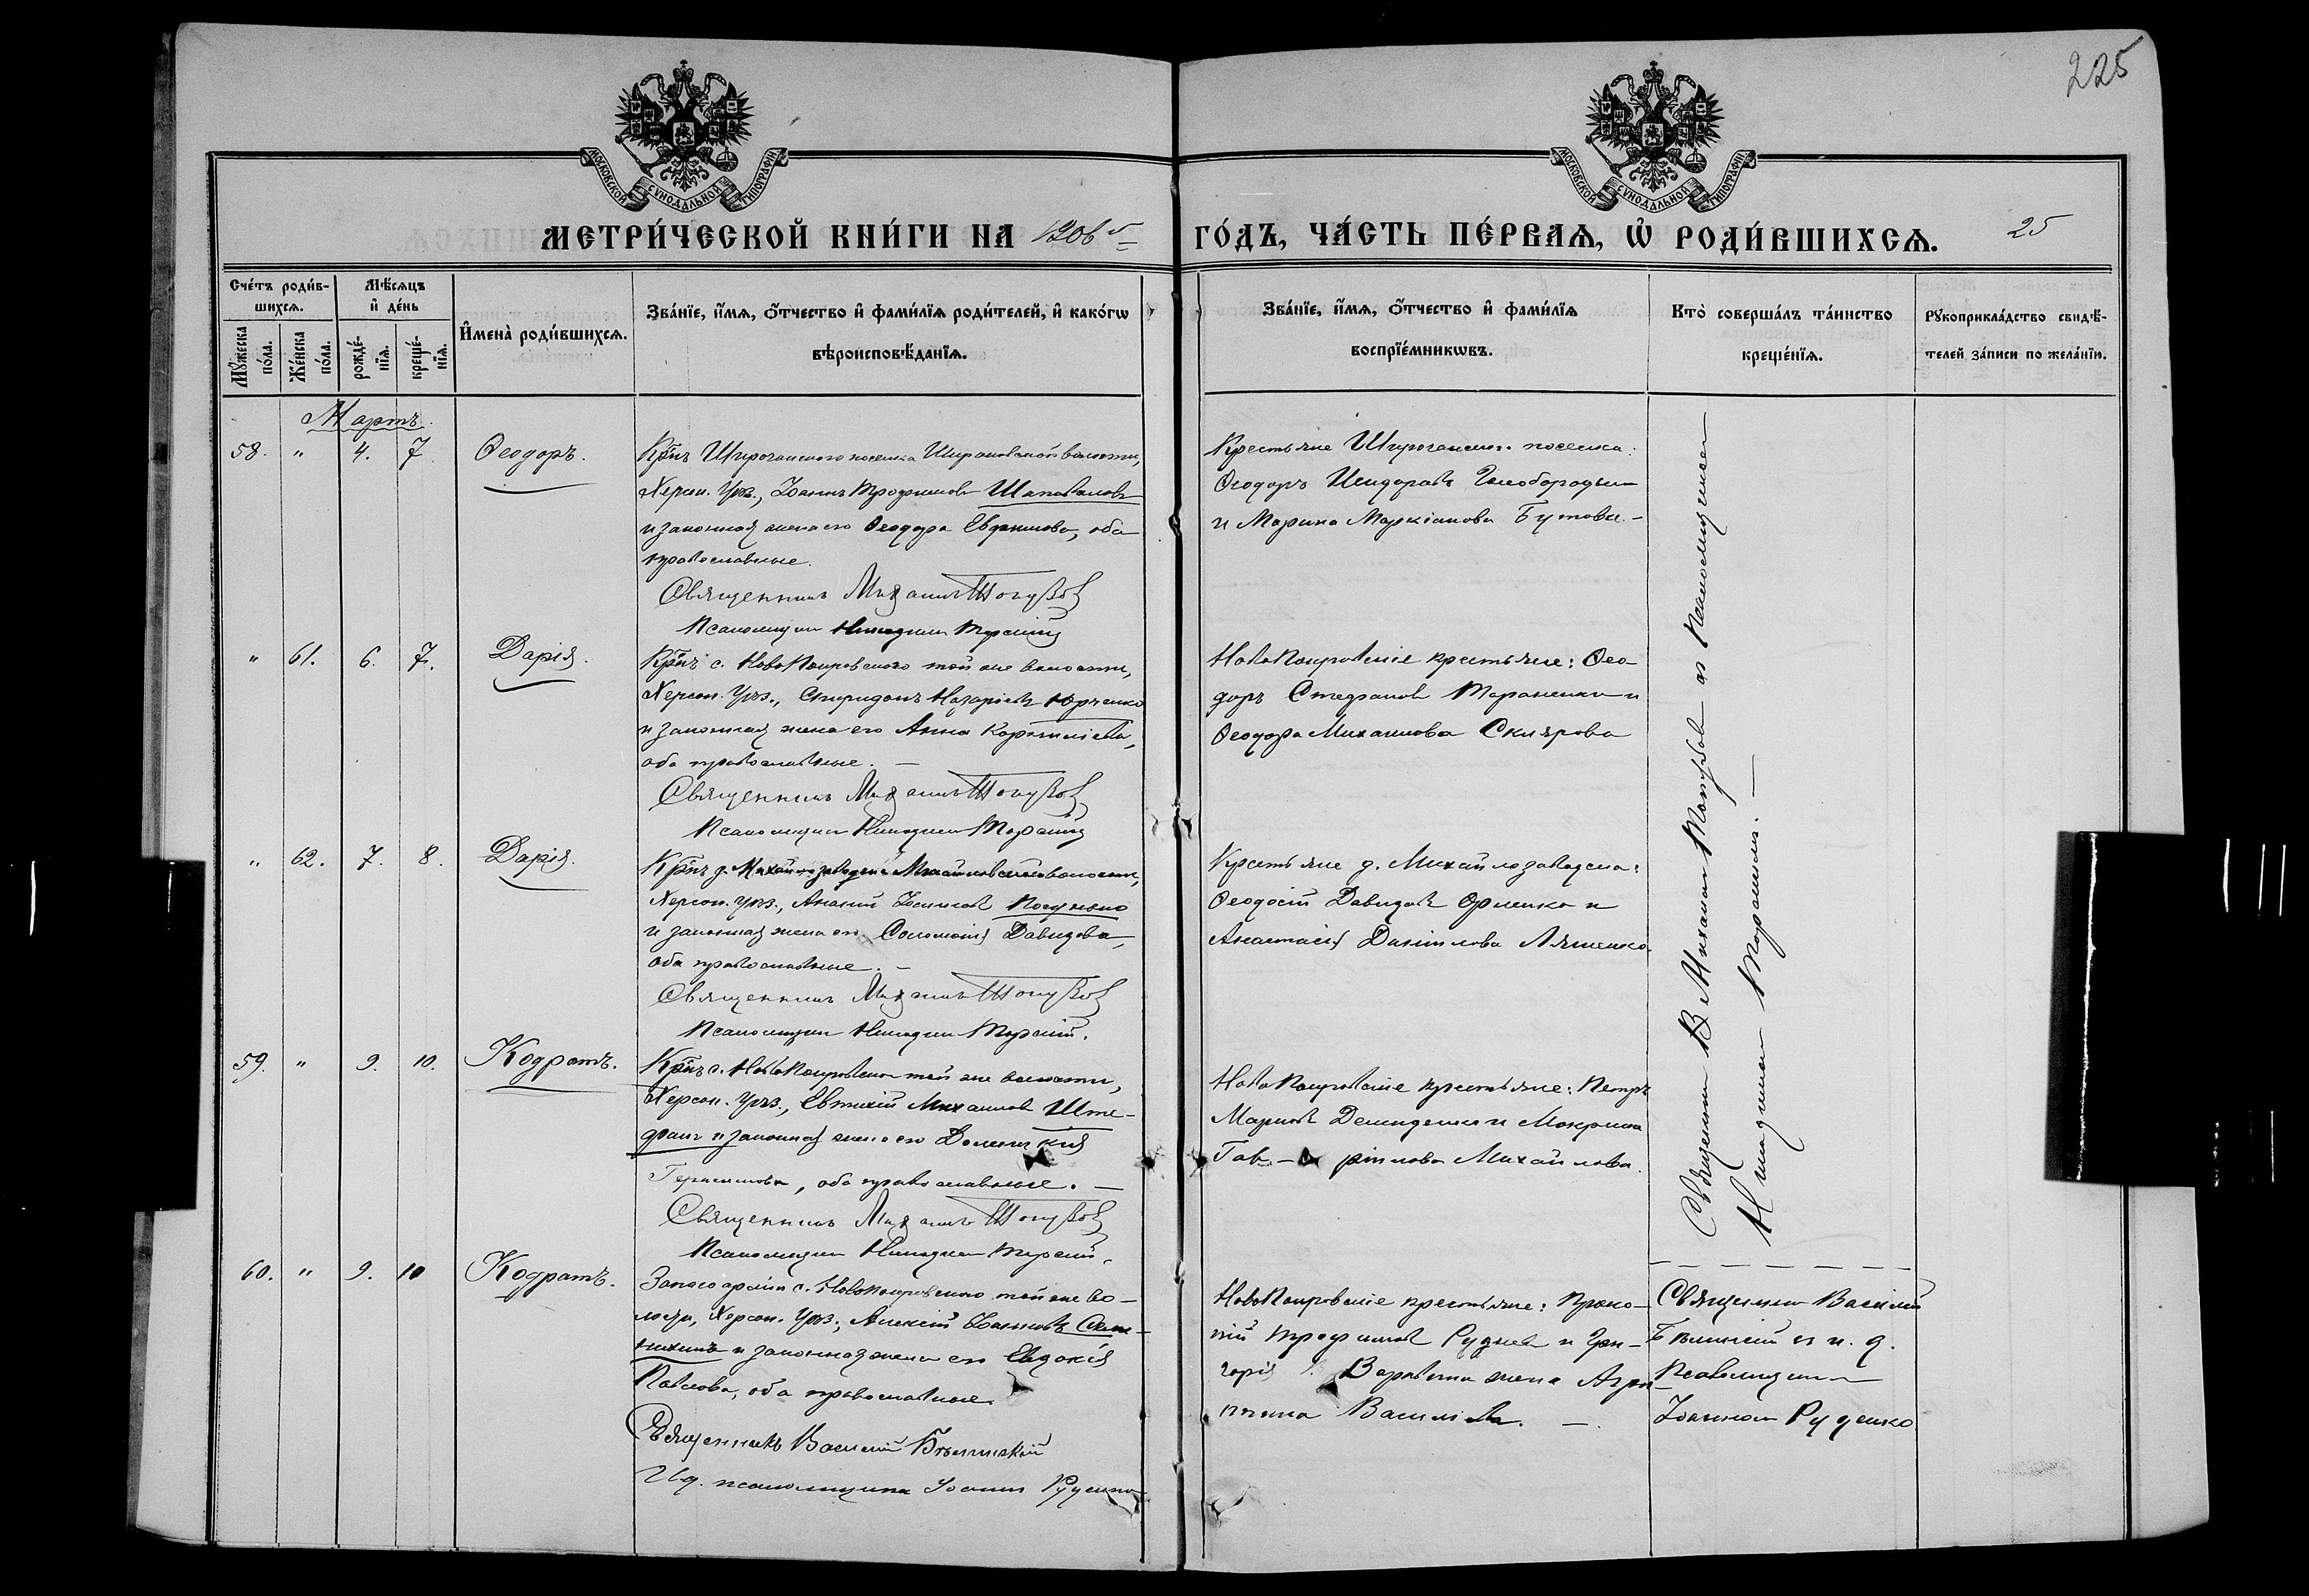 225
МОСКОВСКОЙ СУНОДАЛЬНОЙ ТИПОГРАФІИ
МОСКОВСКОЙ СУНОДАЛЬНОЙ ТИПОГРАФІИ
МЕТРИ́ЧЕСКОЙ КНИ́ГИ НА 1906 ГО́ДЪ, ЧА́СТЬ ПЕ́РВАѦ, Ѡ҆ РОДИ́ВШИХСѦ. 25
Сче́тъ роди́в-
шихсѧ.
Мꙋ́жеска по́ла.
Же́нска по́ла.
Мѣ́сѧцъ
и҆ де́нь
рожде́-
нїѧ.
креще́-
нїѧ.
И҆мена̀ роди́вшихсѧ.
Зва́нїе, и҆́мѧ, ѻ҆́тчество и҆ фами́лїѧ роди́телей, и҆ како́гѡ
вѣроисповѣ́данїѧ.
Зва́нїе, и҆́мѧ, ѻ҆́тчество и҆ фами́лїѧ
воспрїе́мникѡвъ.
Кто̀ соверша́лъ та́инство
креще́нїѧ.
Рꙋкоприкла́дство свидѣ́-
телей за́писи по жела́нїю.
Мартъ.
58. " 4. 7 Ѳеодоръ.
Крнъ Широчанского поселка Широковской волости,
Херсон. Уѣз., Іоаннъ Трофимовъ Шаповаловъ
и законная жена его Ѳеодора Евфимова, оба
православные.
Священникъ Михаилъ
Псаломщик Никодим Торскій
Крестьяне Широчанског. поселка:
Ѳеодоръ Исидоровъ Голобородько
и Марина Маркіанова Бутова. -
" 61. 6. 7. Дарія.
Крнъ с. НовоПокровского той же волости,
Херсон. Уѣз., Спиридонъ Назаріевъ Юрченко
и законная жена его Анна Корниліева,
оба православные. -
Священникъ Михаилъ
Псаломщик Никодим Торскій
НовоПокровскіе крестьяне: Ѳео-
доръ Стефановъ Тараненко и
Ѳеодора Михаилова Склярова
" 62. 7. 8. Дарія.
Крнъ д. Михайлозаводска Михайловской волости,
Херсон. Уѣз., Ананій Іосифовъ
и законная жена его Соломонія Давидова,
оба православные. -
Священникъ Михаилъ
Псаломщик Никодим Торскій.
Крестьяне д. Михайлозаводска:
Ѳеодосій Давидовъ и
Анастасія Даніилова Ляшенко.
59. " 9. 10. Кодратъ.
Крнъ с. НовоПокровскаго той же волости,
Херсон. Уѣз., Евтихій Михаилов Ште-
фанъ и законная жена его Домникія
Герасимова, оба православные. -
Священникъ Михаилъ
Псаломщик Никодим Торскій.
НовоПокровскіе крестьяне: Петръ
Марковъ Демиденко и Мокрина
Гав- ріилова Михайлова.
Священник Михаил с Псаломщиком
Никодимом Торским. -
60. " 9. 10 Кодратъ.
с. НовоПокровского той же во-
лости, Херсон. Уѣз., Алексій Іоанновъ
и законная жена его Евдокія
Павлова, оба православные.
Священникъ Василій Бѣлинскій
И.д. псаломщика Іоаннъ Руденко
НовоПокровскіе крестьяне: Проко-
пій Трофимовъ Руднев и Гри-
горія жена Агри-
пина Василіева. -
Священник Василій
Бѣлинскій с и. д.
Псаломщика
Іоанном Руденко